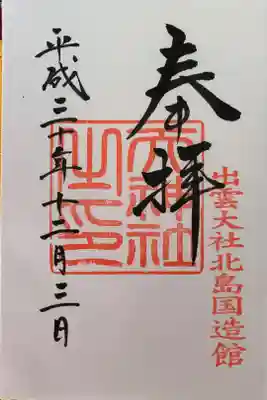 出雲大社北島国造館
奉拝
天神社
之印
平成三十年十二月三日